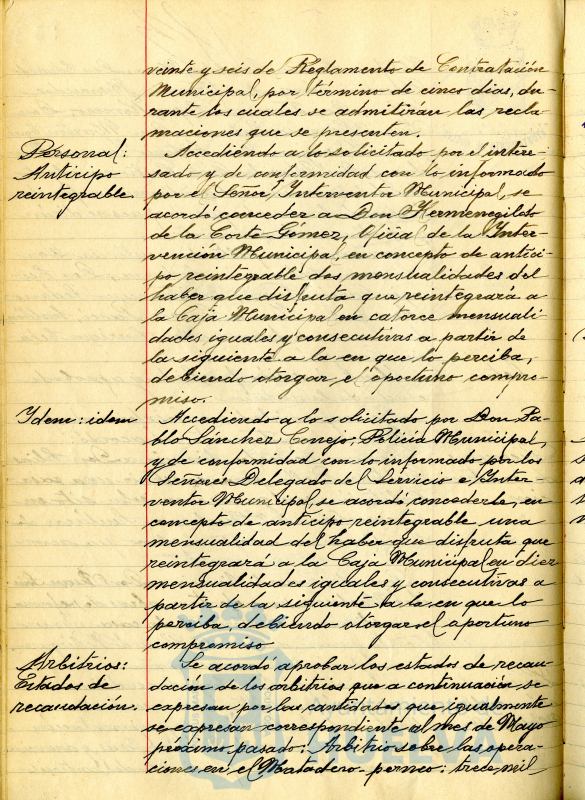 veinte y seis de Reglamento de Contratación
Municipal, por término de cinco días, du-
rante los cuales se admitirán las recla-
maciones que se presenten.
Personal:
Anticipo
reintegrable.
Accediendo a lo solicitado por el intere-
sado y de conformidad con lo informado
por el Señor Interventor Municipal, se
acordó conceder a Don Hermenegildo
de la Corte Gómez, Oficial de la Inter-
vención Municipal, en concepto de antici-
po reintegrable dos mensualidades del
haber que disfruta que reintegrará a
la Caja Municipal en catorce mensuali-
dades iguales y consecutivas a partir de
la siguiente a la en que lo perciba,
debiendo otorgar el oportuno compro-
miso.
Idem: idem
Accediendo a lo solicitado por Don Pa-
blo Sánchez Conejo, Policía Municipal,
y de conformidad con lo informado por los
Señores Delegado del Servicio e Inter-
ventor Municipal, se acordó concederle, en
concepto de anticipo reintegrable una
mensualidad del haber que disfruta que
reintegrará a la Caja Municipal en diez
mensualidades iguales y consecutivas a
partir de la siguiente a la en que lo
perciba, debiendo otorgar el oportuno
compromiso
Arbitrios:
Estados de
recaudación.
Se acordó aprobar los estados de recau-
dación de los arbitrios que a continuación se
expresan por las cantidades que igualmente
se expresan correspondiente al mes de Mayo
próximo pasado: Arbitrio sobre las opera-
ciones en el Matadero porcino: trece mil